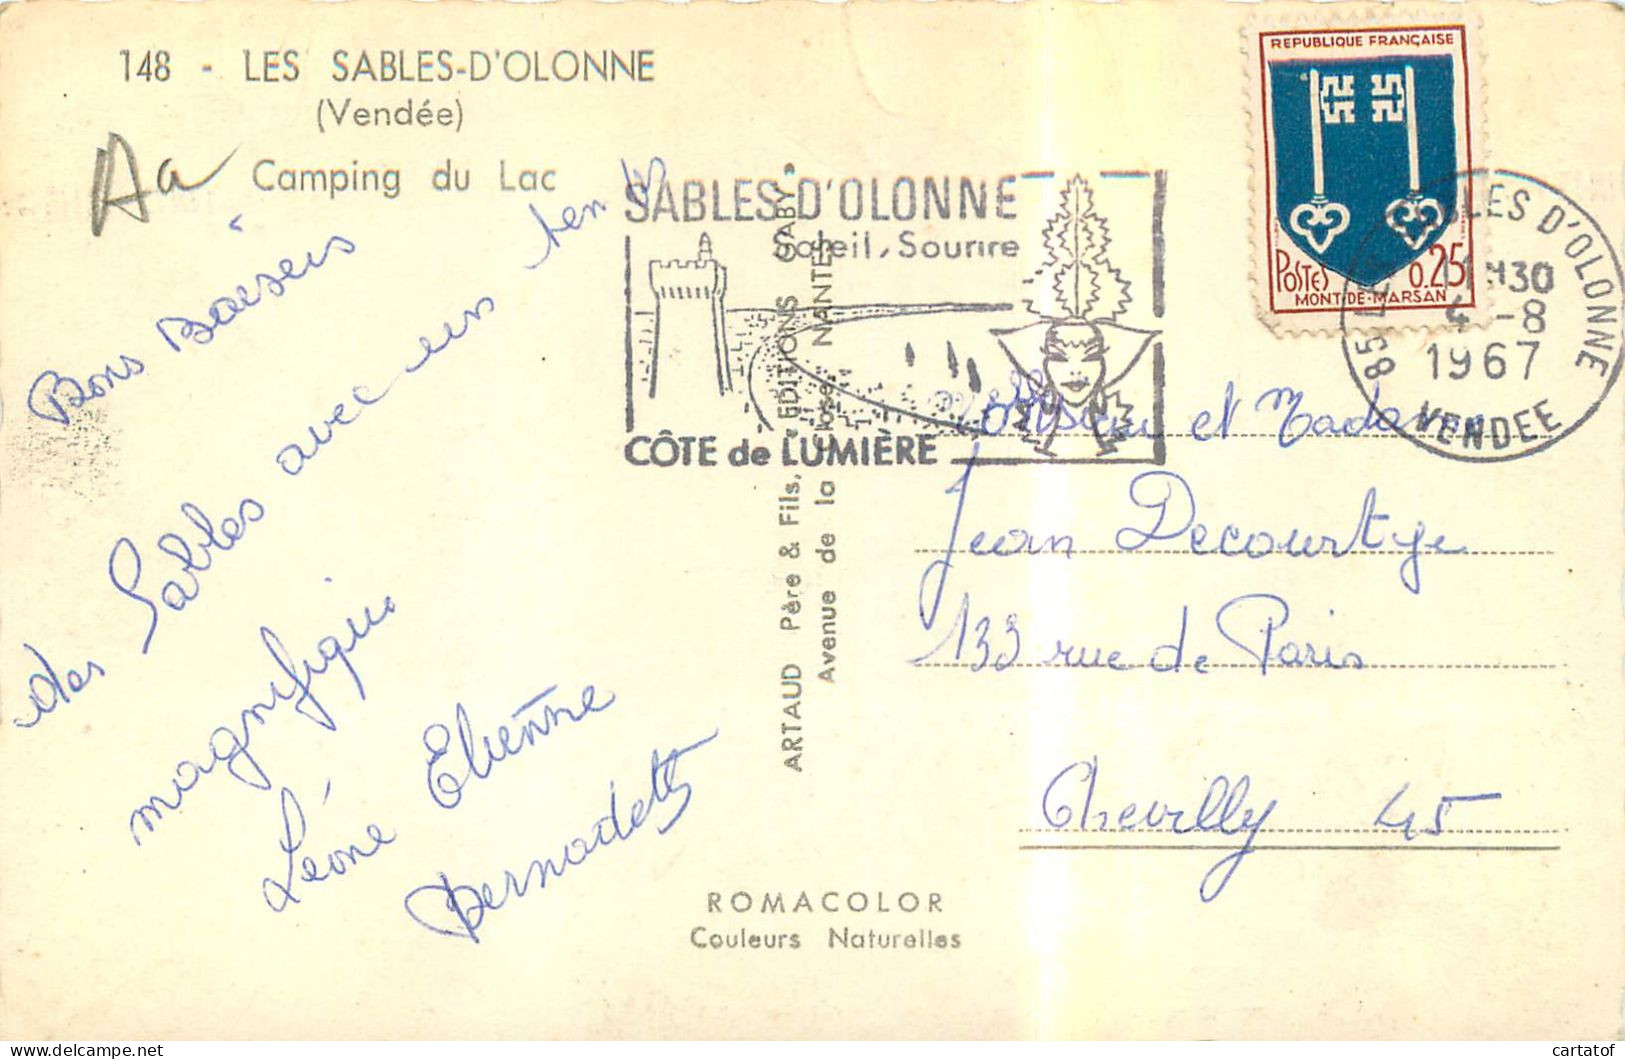 148 - LES SABLES-D'OLONNE
(Vendée)
Camping du Lac
Aa
Bons Baisers
des Sables avec un temps
magnifique
Léone Etienne
Bernadette
ARTAUD Père & Fils, EDITIONS GABY
Avenue de la Close, NANTES
ROMACOLOR
Couleurs Naturelles
SABLES D'OLONNE
Soleil, Sourire
CÔTE de LUMIÈRE
REPUBLIQUE FRANÇAISE
POSTES 0.25
MONT-DE-MARSAN
85 LES SABLES D'OLONNE
H30
-8
1967
VENDEE
Monsieur et Madame
Jean Decourtye
133 rue de Paris
Chevilly 45
cartatof